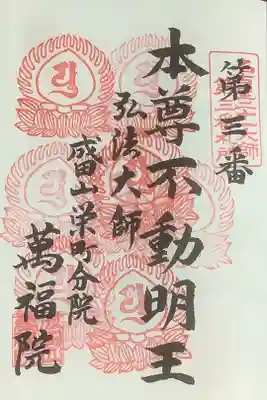 第三番
本尊不動明王
弘法大師
盛山栄町分院
萬福院